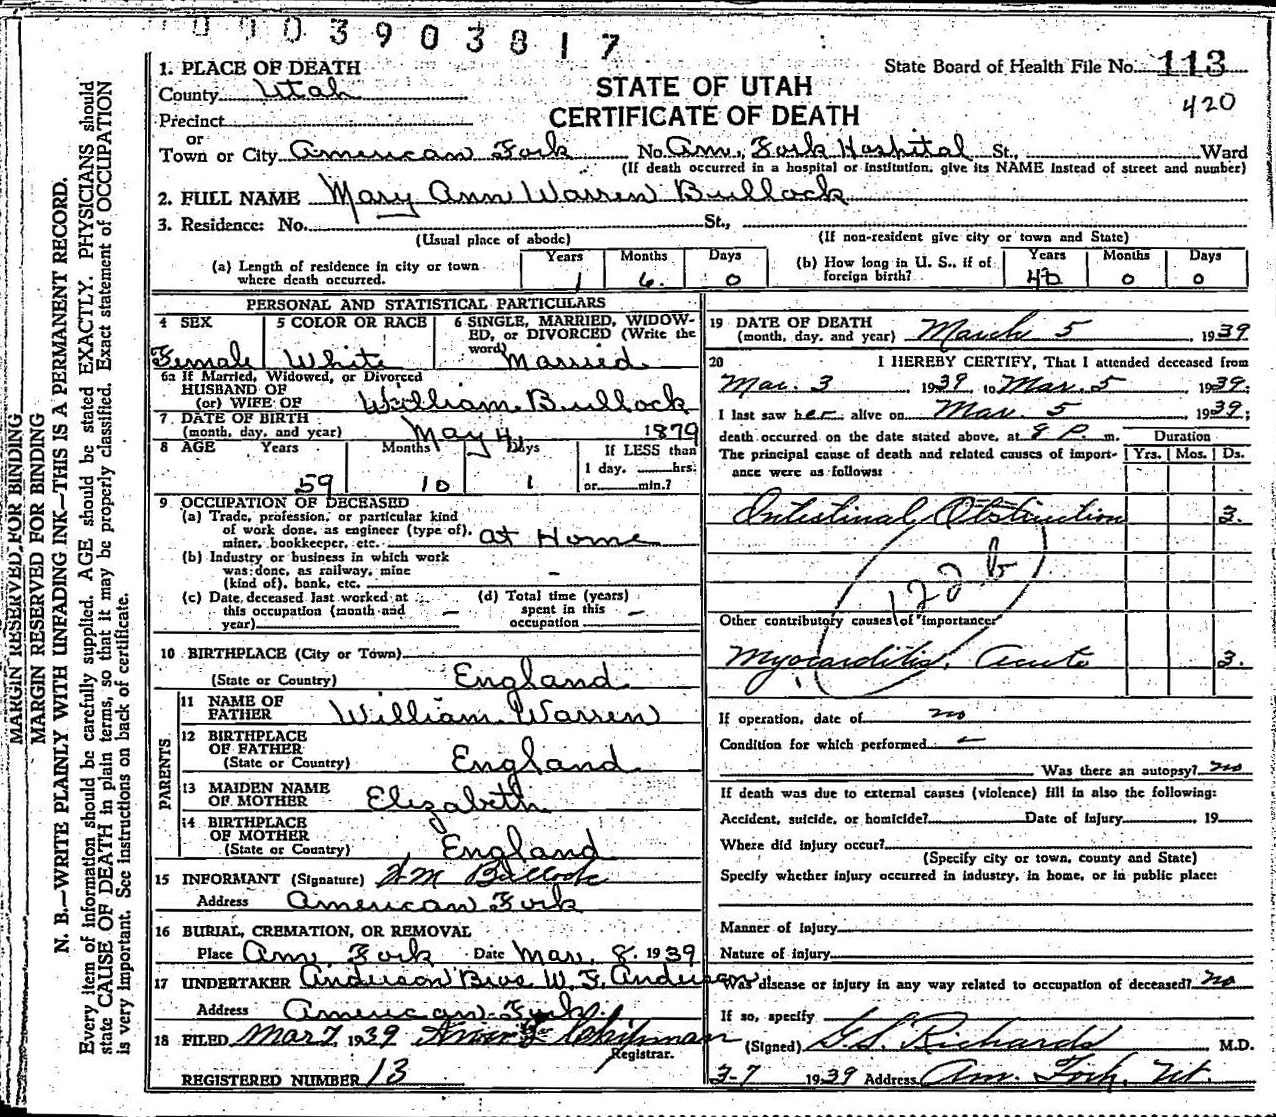 0 0 0 3 9 0 3 8 1 7
1. PLACE OF DEATH
State Board of Health File No. 113
County Utah
STATE OF UTAH
420
Precinct
CERTIFICATE OF DEATH
or
Town or City American Fork No. Am. Fork Hospital St., Ward
(If death occurred in a hospital or institution, give its NAME instead of street and number)
2. FULL NAME Mary Ann Warren Bullock
3. Residence: No. St.,
(Usual place of abode) (If non-resident give city or town and State)
(a) Length of residence in city or town where death occurred. Years 1 Months 6. Days 0
(b) How long in U. S., if of foreign birth? Years 40 Months 0 Days 0
PERSONAL AND STATISTICAL PARTICULARS
4 SEX Female
5 COLOR OR RACE White
6 SINGLE, MARRIED, WIDOW-
ED, or DIVORCED (Write the
word) Married
6a If Married, Widowed, or Divorced
HUSBAND OF
(or) WIFE OF William Bullock
7 DATE OF BIRTH
(month, day, and year) May 4 1879
8 AGE Years 59 Months 10 Days 1
If LESS than
1 day, hrs.
or min.?
9 OCCUPATION OF DECEASED
(a) Trade, profession, or particular kind
of work done, as engineer (type of),
miner, bookkeeper, etc. at Home
(b) Industry or business in which work
was done, as railway, mine
(kind of), bank, etc. –
(c) Date deceased last worked at
this occupation (month and
year) –
(d) Total time (years)
spent in this
occupation –
10 BIRTHPLACE (City or Town)
(State or Country) England
PARENTS
11 NAME OF
FATHER William Warren
12 BIRTHPLACE
OF FATHER
(State or Country) England
13 MAIDEN NAME
OF MOTHER Elizabeth
14 BIRTHPLACE
OF MOTHER
(State or Country) England
15 INFORMANT (Signature) Wm Bullock
Address American Fork
16 BURIAL, CREMATION, OR REMOVAL
Place Am. Fork Date Mar. 8. 1939
17 UNDERTAKER Anderson Bros W. F. Anderson
Address American Fork
18 FILED Mar 7 1939 Chipman
Registrar.
REGISTERED NUMBER 13
19 DATE OF DEATH
(month, day, and year) March 5, 1939
20 I HEREBY CERTIFY, That I attended deceased from
Mar. 3 1939, to Mar. 5 1939;
I last saw her alive on Mar. 5 1939;
death occurred on the date stated above, at 8 P. m.
Duration
The principal cause of death and related causes of import-
ance were as follows:
Yrs. Mos. Ds.
Intestinal Obstruction 3.
122 b
Other contributory causes of importance:
Myocarditis, Acute 3.
If operation, date of no
Condition for which performed –
Was there an autopsy? no
If death was due to external causes (violence) fill in also the following:
Accident, suicide, or homicide? Date of injury , 19
Where did injury occur?
(Specify city or town, county and State)
Specify whether injury occurred in industry, in home, or in public place:
Manner of injury
Nature of injury
Was disease or injury in any way related to occupation of deceased? no
If so, specify
(Signed) G. S. Richards M.D.
3-7 1939 Address Am. Fork, Ut.
MARGIN RESERVED FOR BINDING
MARGIN RESERVED FOR BINDING
N. B.—WRITE PLAINLY WITH UNFADING INK—THIS IS A PERMANENT RECORD.
Every item of information should be carefully supplied. AGE should be stated EXACTLY. PHYSICIANS should
state CAUSE OF DEATH in plain terms, so that it may be properly classified. Exact statement of OCCUPATION
is very important. See instructions on back of certificate.